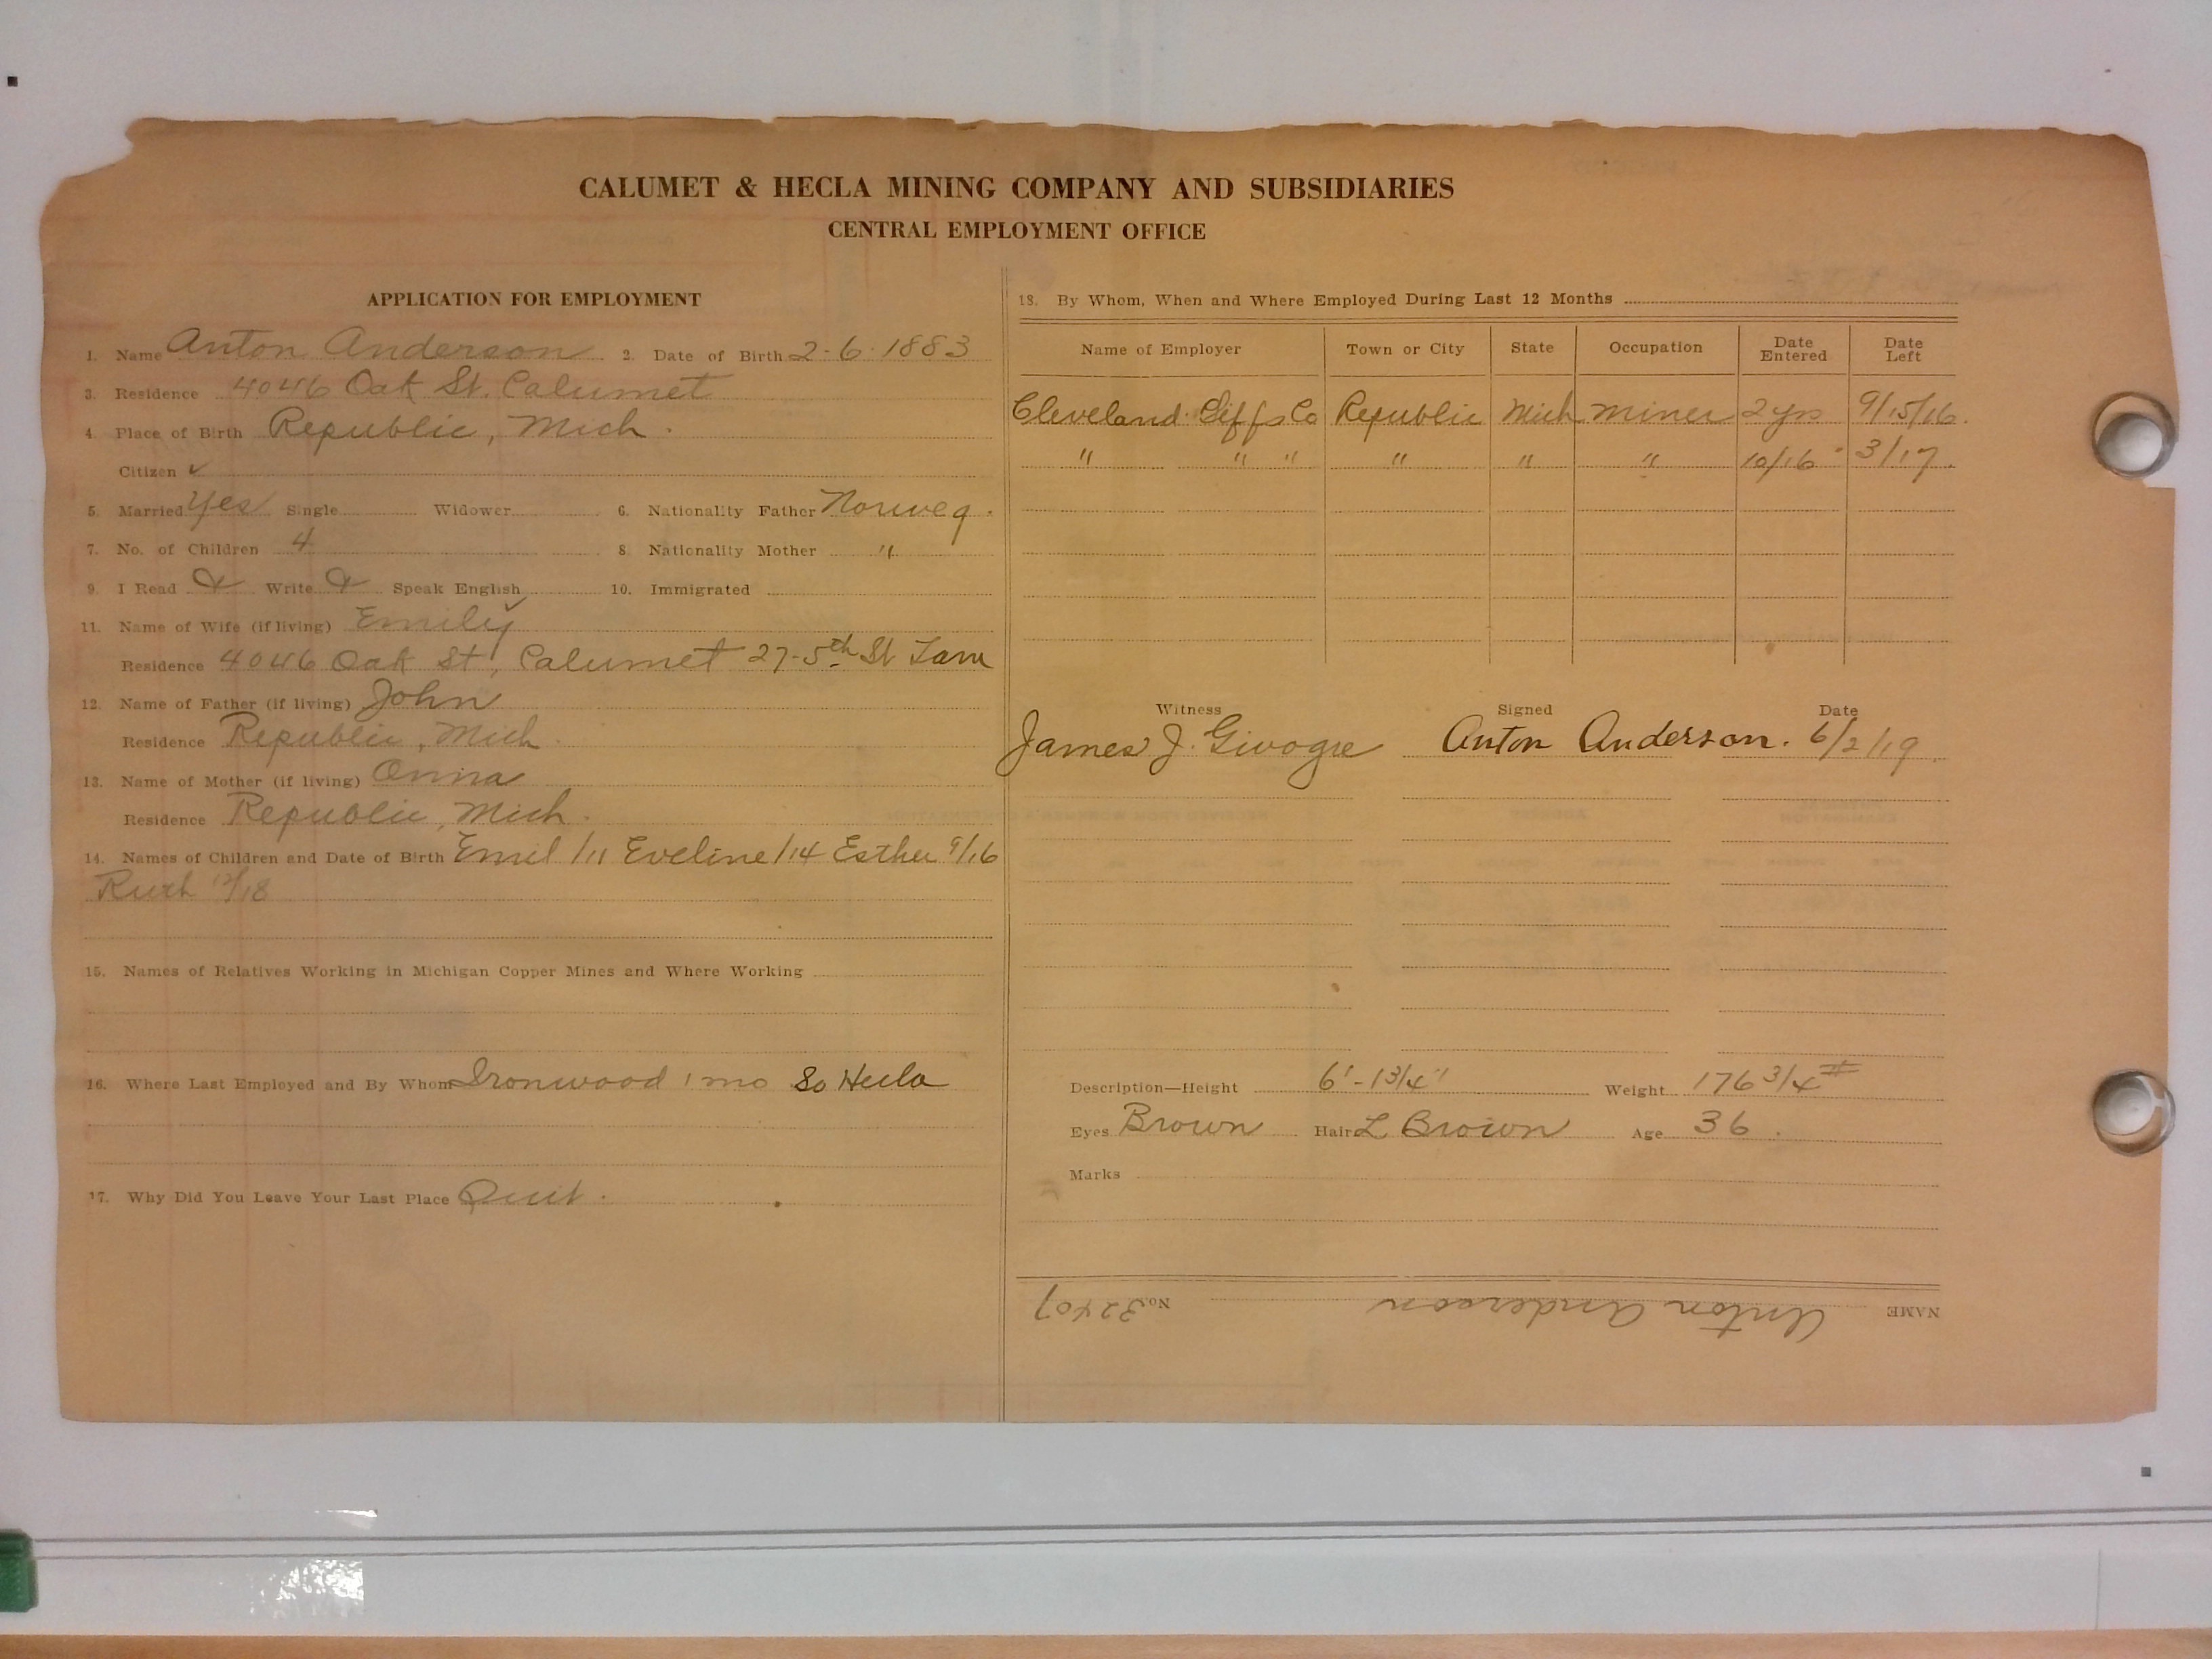 CALUMET & HECLA MINING COMPANY AND SUBSIDIARIES
CENTRAL EMPLOYMENT OFFICE
APPLICATION FOR EMPLOYMENT
1. Name Anton Anderson 2. Date of Birth 2-6-1883
3. Residence 4046 Oak St. Calumet
4. Place of Birth Republic, Mich.
Citizen ✓
5. Married Yes Single Widower 6. Nationality Father Norweg.
7. No. of Children 4 8. Nationality Mother "
9. I Read & Write & Speak English ✓ 10. Immigrated
11. Name of Wife (if living) Emily
Residence 4046 Oak St, Calumet 27-5th St
12. Name of Father (if living) John
Residence Republic, Mich.
13. Name of Mother (if living) Anna
Residence Republic, Mich.
14. Names of Children and Date of Birth Emil /11 Eveline /14 Esther 9/16
Ruth 12/18
15. Names of Relatives Working in Michigan Copper Mines and Where Working
16. Where Last Employed and By Whom Ironwood 1 mo So Hecla
17. Why Did You Leave Your Last Place Quit.
18. By Whom, When and Where Employed During Last 12 Months
Name of Employer Town or City State Occupation Date Entered Date Left
Cleveland Co Republic Mich Miner 2 yrs 9/15/16.
" " " " " " 10/16 3/17.
Witness Signed Date
James J. Anton Anderson. 6/2/19
Description—Height 6'-1 3/4" Weight 176 3/4 #
Eyes Brown Hair L Brown Age 36.
Marks
NAME Anton Anderson No. 32407